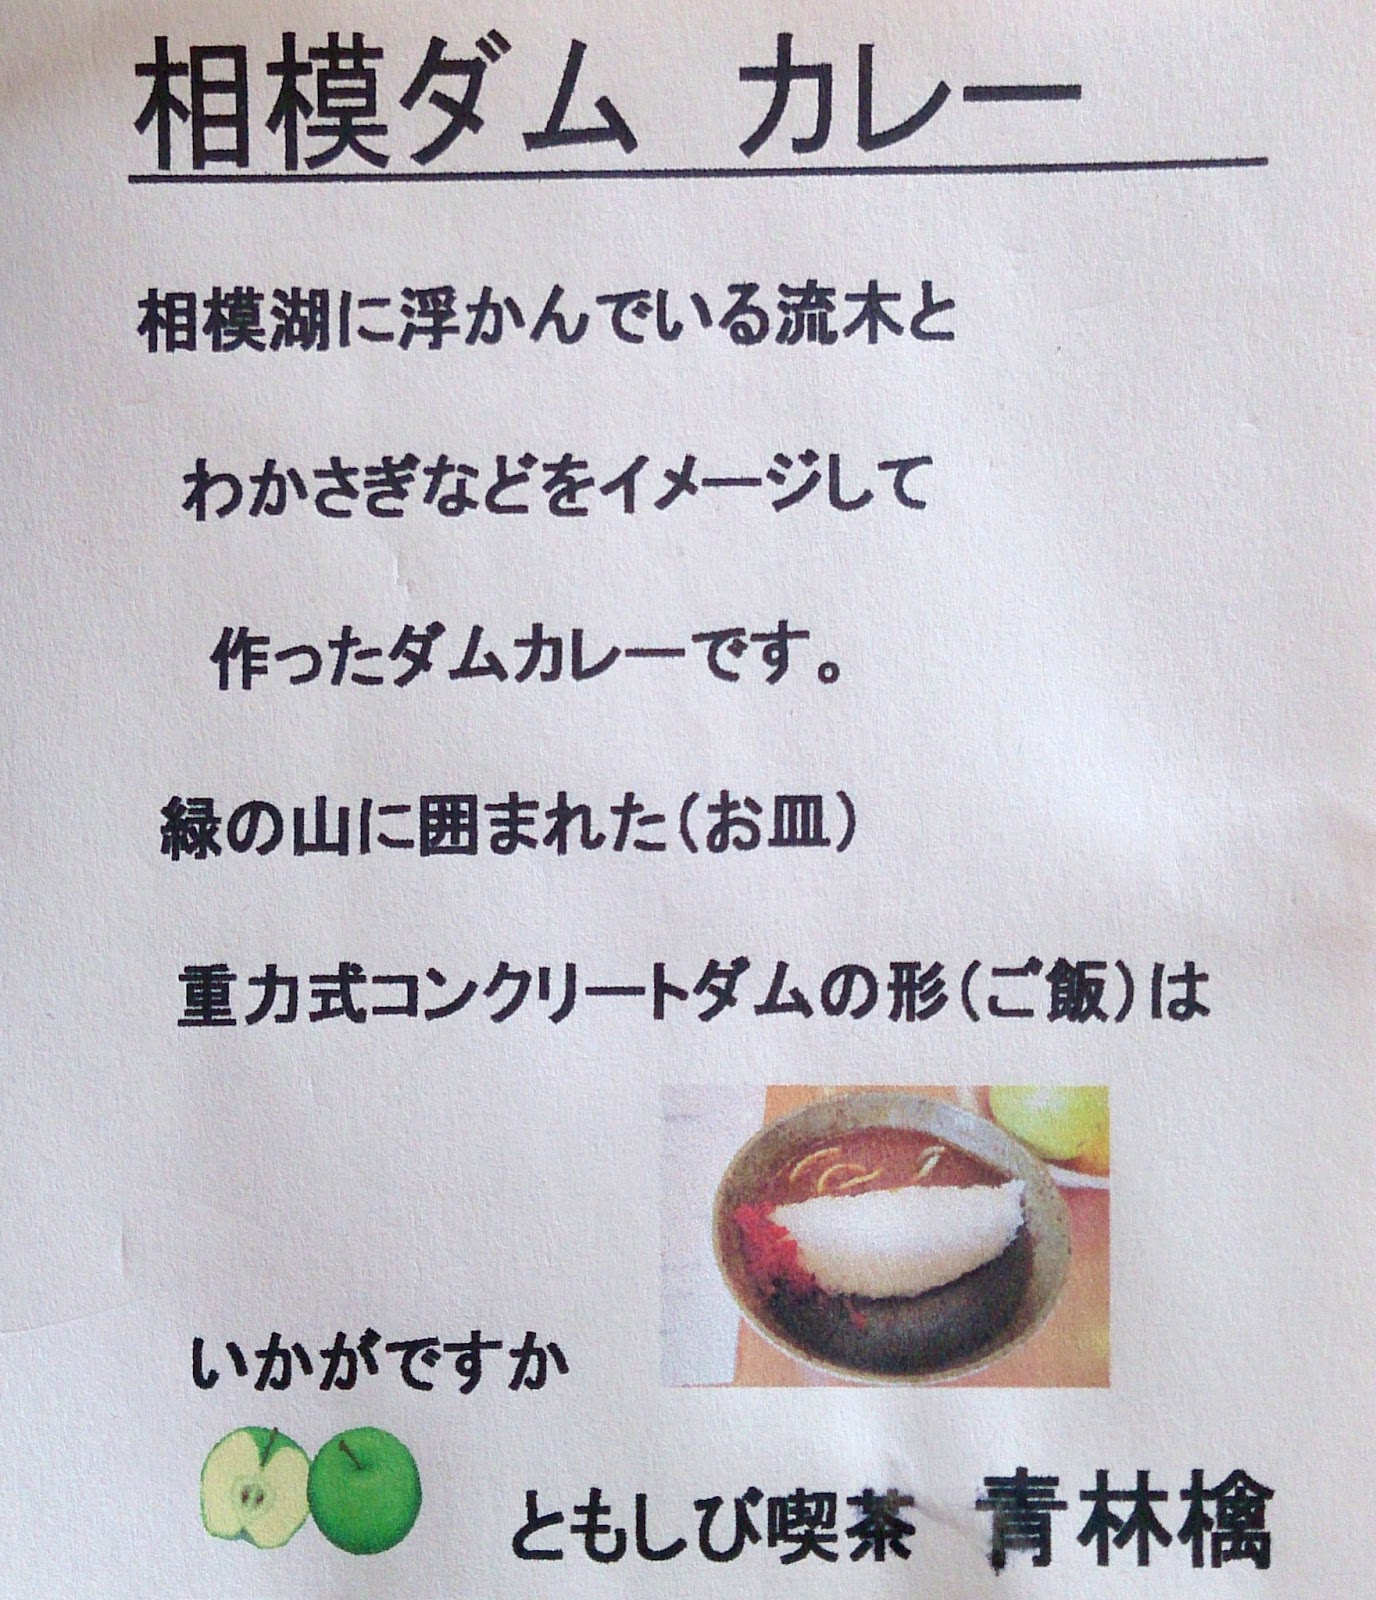 相模ダム　カレー
相模湖に浮かんでいる流木と
わかさぎなどをイメージして
作ったダムカレーです。
緑の山に囲まれた（お皿）
重力式コンクリートダムの形（ご飯）は
いかがですか
ともしび喫茶　青林檎